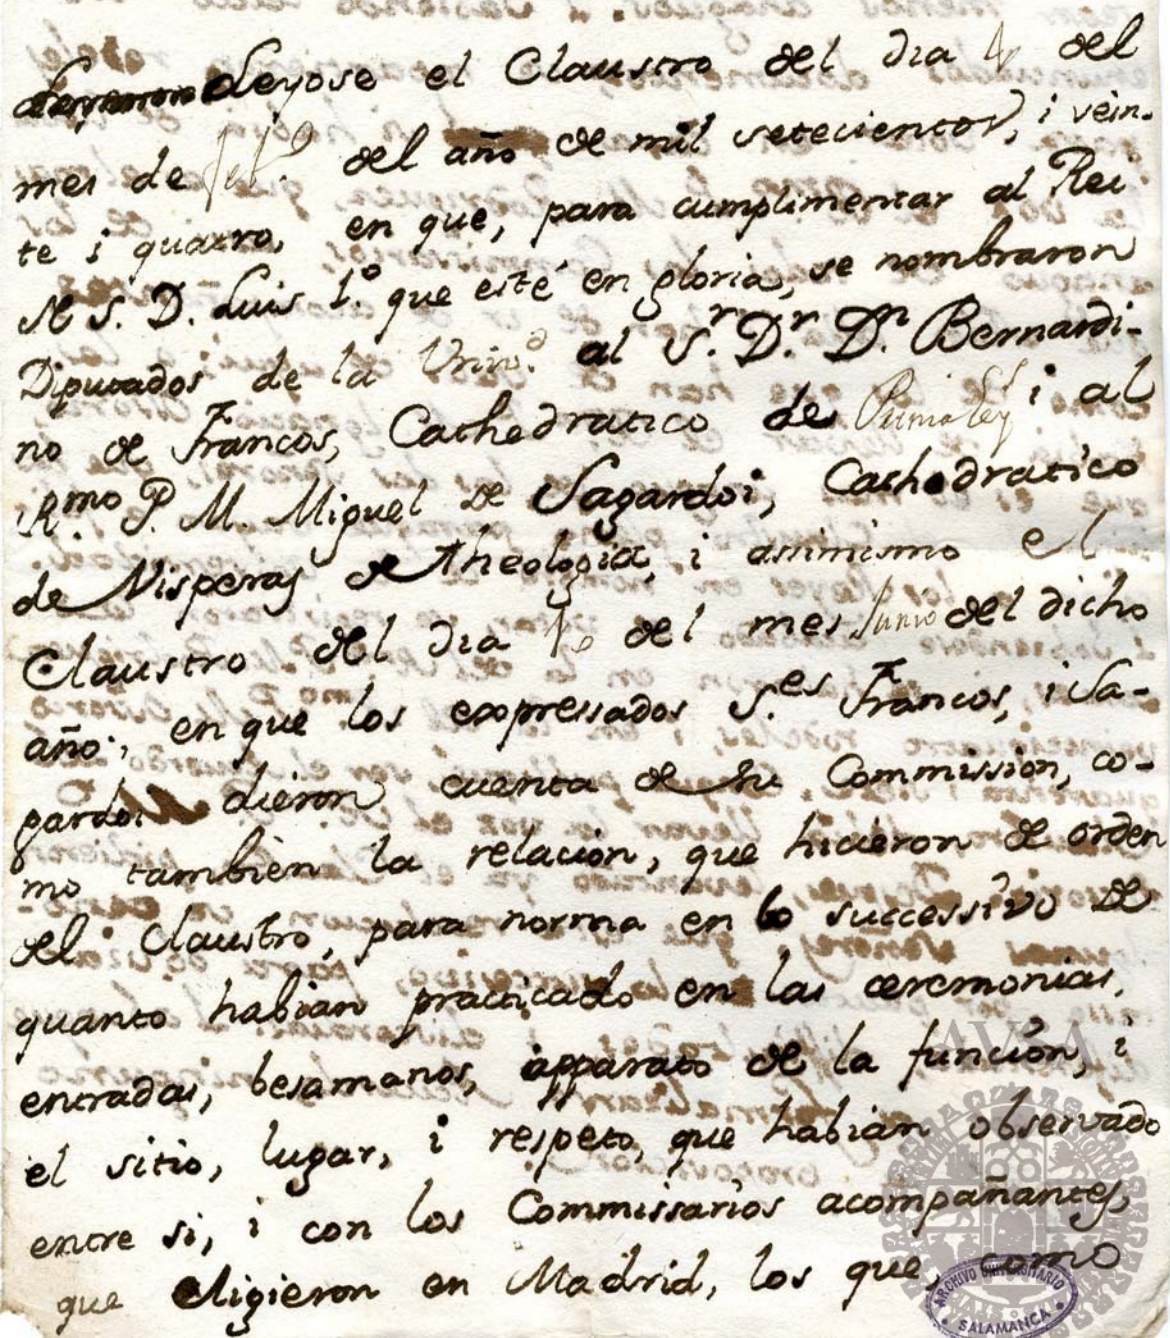 Leyose el Claustro del dia 4 del
mes de feb.º del año de mil setecientos, i vein-
te i quatro, en que, para cumplimentar al Rei
N. S. D. Luis 1.º que esté en gloria, se nombraron
Diputados de la Univ.d al S.r D.r D.n Bernardi-
no de Francos, Cathedratico de Prima i al
R.mo P. M. Miguel de Sagardoi, Cathedratico
de Visperas de Theologia, i assimismo el
Claustro del dia del mes Junio del dicho
año, en que los expressados S.es Francos, i Sa-
gardoi dieron cuenta de su Commission, co-
mo tambièn la relacion, que hicieron de orden
del Claustro, para norma en lo successivo de
quanto habian practicado en las ceremonias,
entradas, besamanos, apparato de la función, i
el sitio, lugar, i respeto, que habian observado
entre si, i con los Commissarios acompañantes,
que eligieron en Madrid, los que, como
AVSA
ARCHIVO UNIVERSITARIO
SALAMANCA